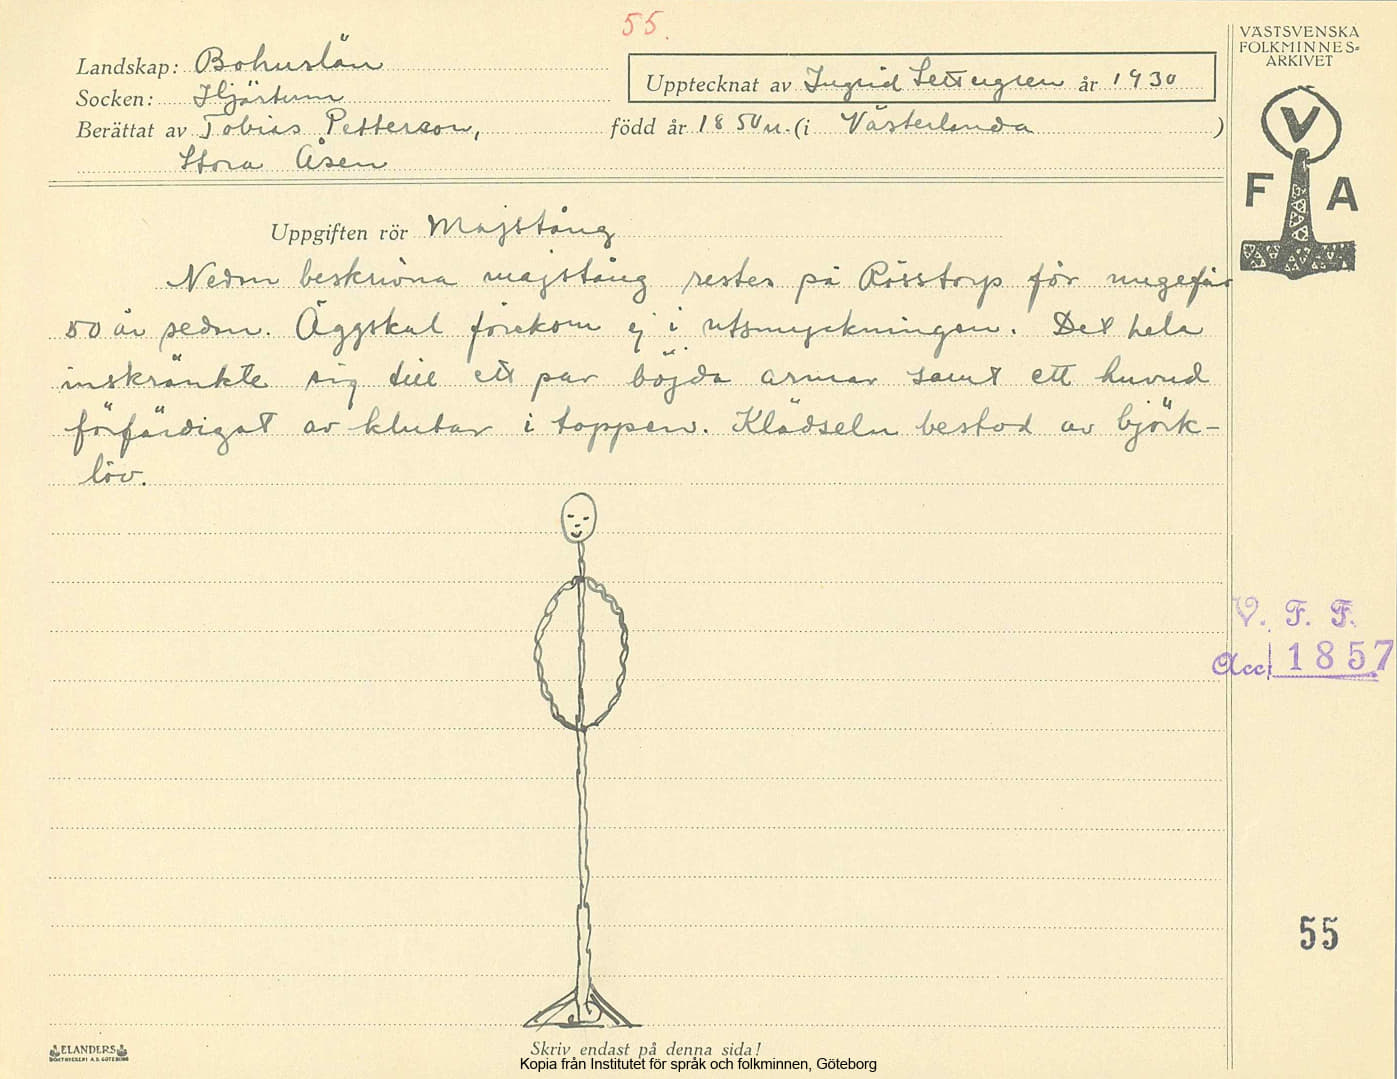 55.
VÄSTSVENSKA
FOLKMINNES-
ARKIVET
Landskap: Bohuslän
Socken: Hjärtum
Upptecknat av Ingrid år 1930
Berättat av Tobias Petterson, född år 1850 (i Västerlanda)
Stora Åsen
V
F A
Uppgiften rör Majstång
Nedan beskrivna majstång restes på Rösstorp för ungefär
50 år sedan. Äggskal förekom ej i utsmyckningen. Det hela
inskränkte sig till ett par böjda armar samt ett huvud
förfärdigat av klutar i toppen. Klädseln bestod av björk-
löv.
V. F. F.
Acc 1857
55
ELANDERS
BOKTRYCKERI A.B. GÖTEBORG
Skriv endast på denna sida!
Kopia från Institutet för språk och folkminnen, Göteborg